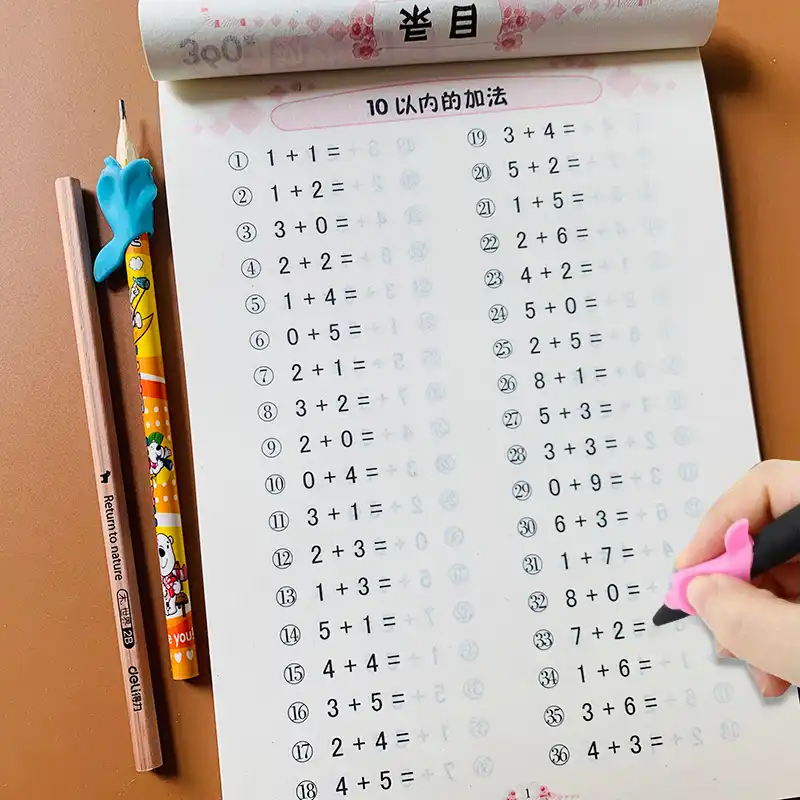 目录
10以内的加法
① 1+1=
② 1+2=
③ 3+0=
④ 2+2=
⑤ 1+4=
⑥ 0+5=
⑦ 2+1=
⑧ 3+2=
⑨ 2+0=
⑩ 0+4=
⑪ 3+1=
⑫ 2+3=
⑬ 1+3=
⑭ 5+1=
⑮ 4+4=
⑯ 3+5=
⑰ 2+4=
⑱ 4+5=
⑲ 3+4=
⑳ 5+2=
㉑ 1+5=
㉒ 2+6=
㉓ 4+2=
㉔ 5+0=
㉕ 2+5=
㉖ 8+1=
㉗ 5+3=
㉘ 3+3=
㉙ 0+9=
㉚ 6+3=
㉛ 1+7=
㉜ 8+0=
㉝ 7+2=
㉞ 1+6=
㉟ 3+6=
㊱ 4+3=
1
Return to nature
2B
deli得力
you!